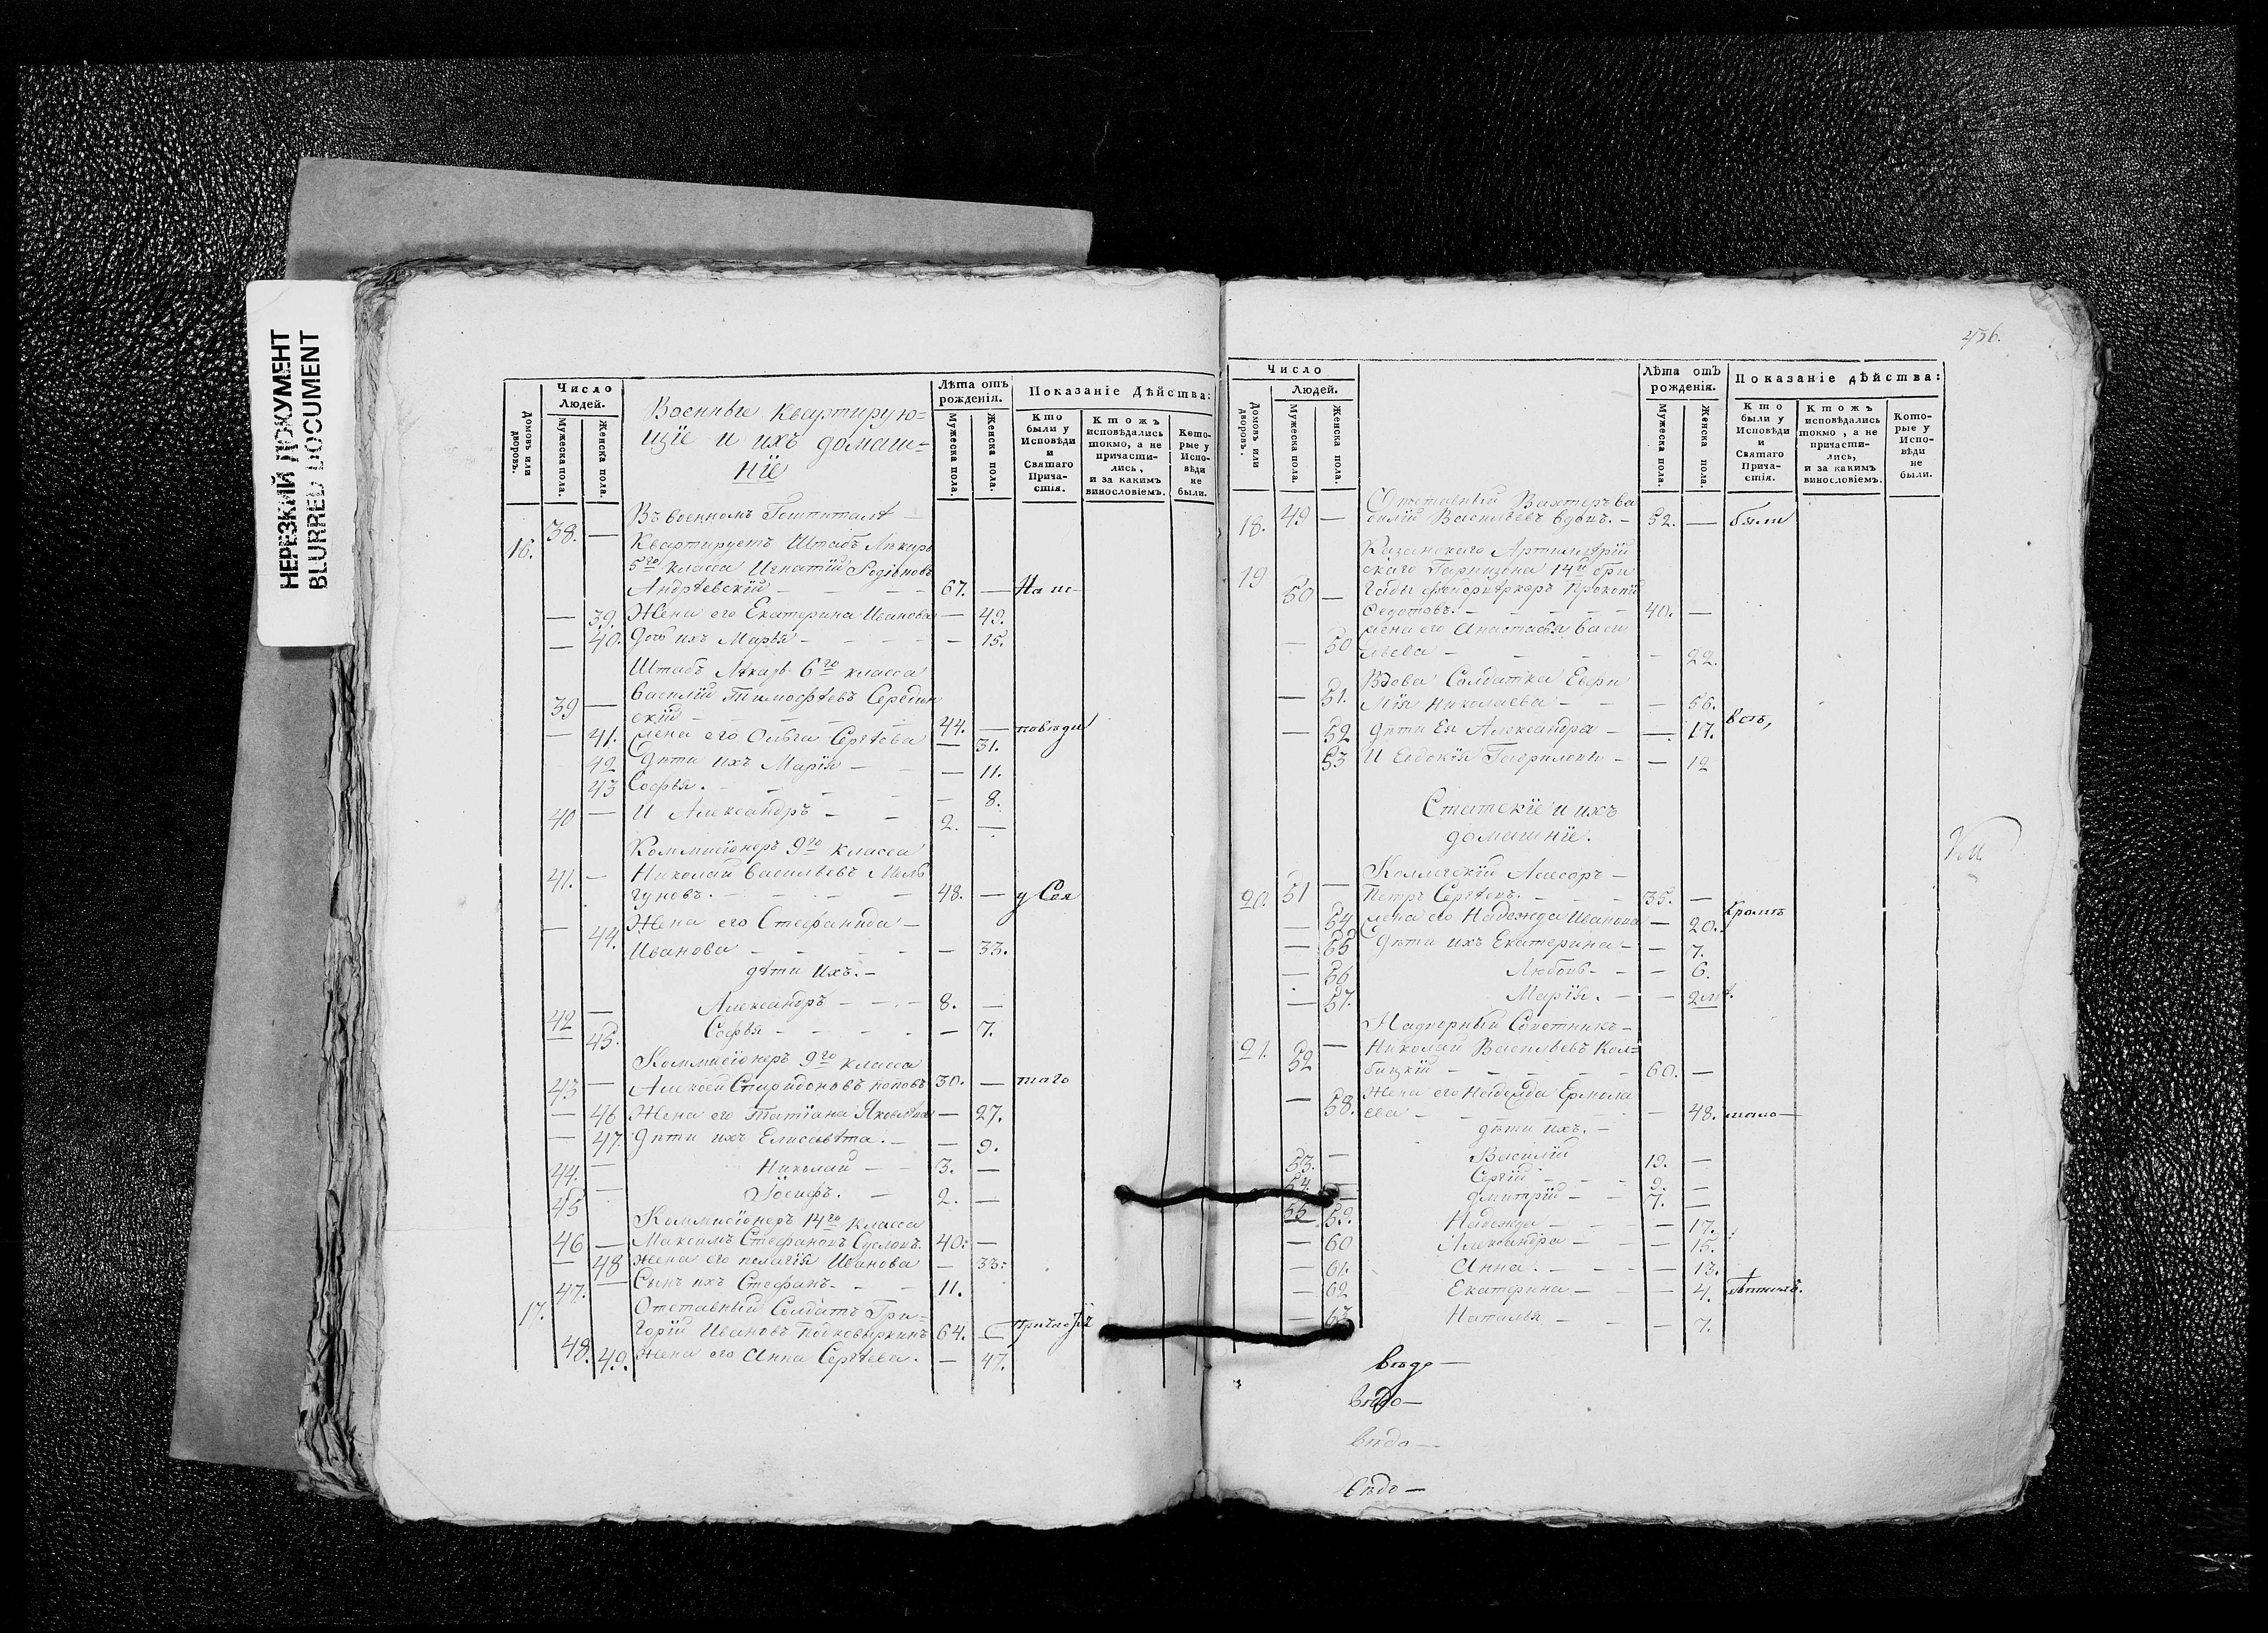 НЕРЕЗКИЙ ДОКУМЕНТ
BLURRED DOCUMENT
Число Людей.
Домовъ или дворовъ.
Мужеска пола.
Женска пола.
Военные квартирую=
щіе и ихъ домаш=
ніе
Лѣта отъ рожденія.
Мужеска пола.
Женска пола.
Показаніе Дѣйства:
Кто были у Исповѣди и Святаго Прича-стія.
Ктожъ исповѣдались токмо, а не причасти-лись, и за какимъ винословіемъ.
Кото-рые у Испо-вѣди не были.
Въ военномъ Гошпиталѣ —
16. 38. — Квартируетъ Штабъ Лѣкарь
5го класса Игнатій Родіоновъ
Андрѣевскій — 67. — На ис-
— 39. Жена его Екатерина Иванова — 49.
— 40. Дочь ихъ Марья — 15.
Штабъ Лѣкарь 6го класса
39 — Василій Тимофѣевъ Середин
скій — 44. — повѣди
— 41. Жена его Ольга Сергѣева — 31.
42 Дѣти ихъ Марія — 11.
43 Софья. — 8.
40 — И Александръ — 2. —
Коммисіонеръ 9го класса
41. — Николай Васильевъ Мель
гуновъ. — 48. — у Свя
— 44. Жена его Стефанида —
Иванова — 33.
дѣти ихъ. —
42 — Александръ — 8. —
45. Софья — 7.
Коммисіонеръ 9го класса
43 — Алексѣй Спиридоновъ Поповъ 30. — таго
— 46 Жена его Татіана Яковлѣва — 27.
— 47. Дѣти ихъ Елисавѣта. — 9.
44. — Николай — 3. —
45 — Іосифъ. — 2. —
Коммисіонеръ 14го класса
46 — Максимъ Стефановъ Сусловъ. 40. —
— 48 Жена его Пелагія Иванова — 33.
47. — Сынъ ихъ Стефанъ. — 11.
17. Отставный Солдатъ Гри=
48. горій Ивановъ Подковыркинъ 64. —
49. Жена его Анна Сергѣева. — 47.
436.
Число Людей.
Домовъ или дворовъ.
Мужеска пола.
Женска пола.
Лѣта отъ рожденія.
Мужеска пола.
Женска пола.
Показаніе дѣйства:
Кто были у Исповѣди и Святаго Прича-стія.
Ктожъ исповѣдались токмо, а не причасти-лись, и за какимъ винословіемъ.
Кото-рые у Испо-вѣди не были.
Отставный Вахтеръ Ва
18. 49 — силій Васильевъ вдовъ. — 52. — были
Казанскаго Артиллѣрій
19 скаго Гарнизона 14й бри
50 — гады Фейерверкеръ Прокопій
Федотовъ. — 40. —
— 50 Жена его Анастасья Васи
льева — 22.
Вдова Солдатка Евфи
— 51. мія Николаева — 56.
— 52 Дѣти Ея Александра — 17.
53 И Евдокія Гавриловы — 12
Статскіе и ихъ
домашніе.
Коллегскій Асесоръ —
20. 51 — Петръ Сергѣевъ. — 35. — Кромѣ
— 54 Жена его Надежда Иванова — 20.
— 55 Дѣти ихъ Екатерина — 7.
— 56 Любовь — 6.
— 57. Марія. — 2 лѣт.
Надворный Совѣтникъ —
21. 52 — Николай Васильевъ Кол=
бицкій — 60. —
— 58. Жена его Надежда Ермола
ева — 48. мало—
дѣти ихъ. —
53. — Василій 19. —
54. — Сергій — 9. —
55 — Дмитрій — 7. —
59. Надежда — 17.
— 60 Александра — 15.
— 61. Анна. — 13.
— 62 Екатерина — 4. лѣтныхъ.
— 63 Наталья — 7.
вѣдо—
вѣдо—
вѣдо—
вѣдо—